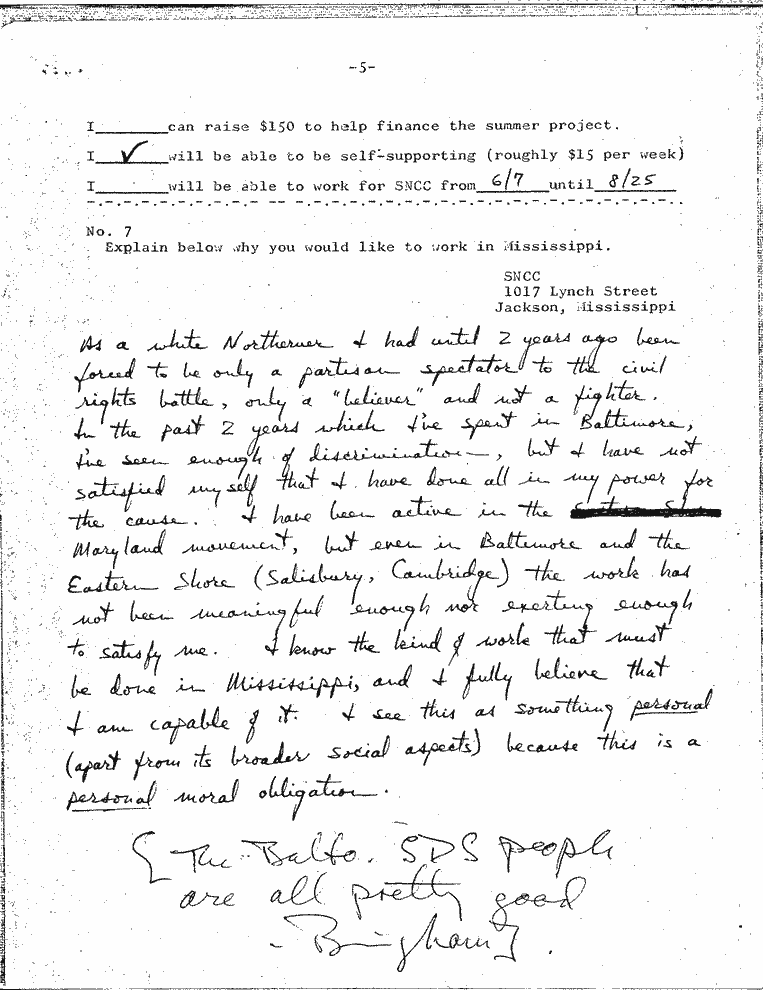 -5-
I________can raise $150 to help finance the summer project.
I___✓___will be able to be self-supporting (roughly $15 per week)
I________will be able to work for SNCC from 6/7 until 8/25
No. 7
Explain below why you would like to work in Mississippi.
SNCC
1017 Lynch Street
Jackson, Mississippi
As a white Northerner I had until 2 years ago been
forced to be only a partisan spectator to the civil
rights battle, only a "believer" and not a fighter.
In the past 2 years which I've spent in Baltimore,
I've seen enough of discrimination, but I have not
satisfied myself that I have done all in my power for
the cause. I have been active in the
Maryland movement, but even in Baltimore and the
Eastern Shore (Salisbury, Cambridge) the work has
not been meaningful enough nor exerting enough
to satisfy me. I know the kind of work that must
be done in Mississippi, and I fully believe that
I am capable of it. I see this as something personal
(apart from its broader social aspects) because this is a
personal moral obligation.
[The Balto. SDS people
are all pretty good
- Bingham].